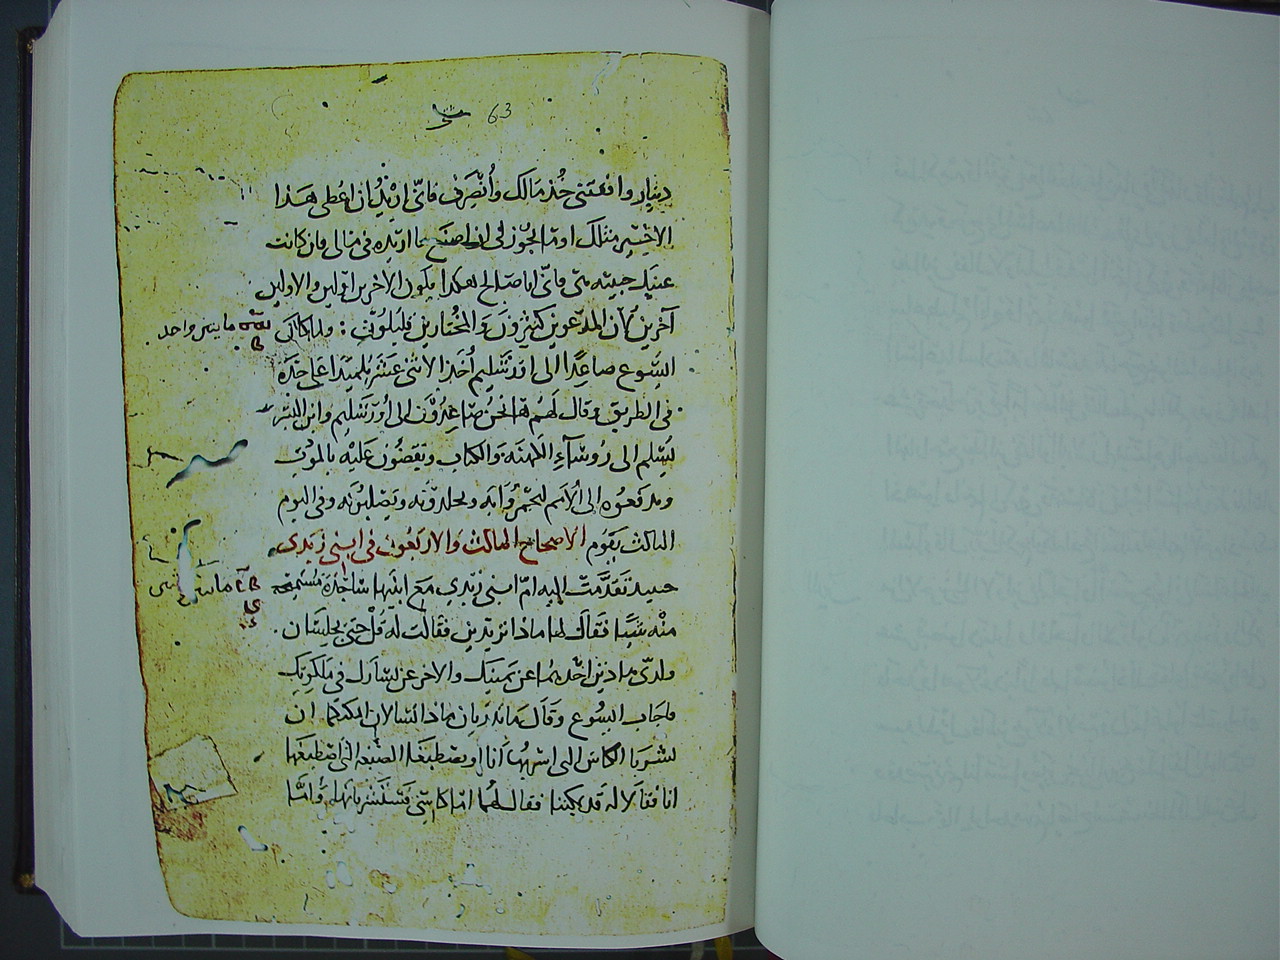 63
دينار وافقتني خُذ مَالك وأنصَرف فانّي اريْدُ ان اعُطي هَذا
الاخِيْر مثلك اومَا يجُوز لي ان اصنَع ما اريده في مَالي فان كانت
عينَك خبيثه فانّي انا صَالح هكذا يكون الاخرين اوّلين والاولين
آخرين لأن المدعوين كثيرُونَ وَالمُختارين قليلون : ولما كان
ما ينزواحد
اليسُوع صاعِدًا الى اورَشليم أخَذ الاثنى عَشر تلميَذًا على حدَة
في الطريق وقال لهُم ها نحنُ صَاعِدُوْن الى أورَشليم وابن البشر
يُسلم الى رُوسَآءِ الكَهنَه وَالكتاب ويَقضُون عَليْه بالموْت
ويدفعُوه الى الأمَم ليهَزُوَا بَه ويجلدوْنَه ويَصْلبُونَه وفي اليَوم
الثالث يقوُم الاصحاح الثالث والاربَعُون في ابني زبَدي
حينيذ تَقدَّمتْ إليه امّ ابني زبَدي مَع ابنَيها سَاجدَة
منْه شيًا فقَال لهَا ماذا تريْديْن فقَالت لَه قلْ حَتى يجلِسَان .
ولديّ هاذين احَدهُما عن يَمينِك والاخر عن يسَارك في مَلكوتِك
فاجَاب اليسُوع وقَالَ مَا تدريَان مَاذا تسَالان ايمكنكما ان
تشرَبا الكاس التي اشربُها أنا او تصْطبغَا الصَّبْغه التي اصْطبغَها
انا فقَالا لَه قد يمكننا فقال لهُما امّا كاسي فسَتشرَبانها وَأمَّا